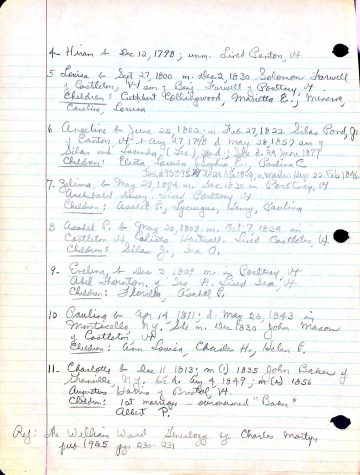 4- Hiram b Dec 12, 1798; unm. Lived Canton, Vt
5 Louisa b Sept 27, 1800 m. Dec 2, 1830 Solomon Farwell
of Castleton, Vt son of Benj. Farwell of Poultney, Vt.
Children: Cuthbert Collingwood, Marietta E., Minerva,
Caroline, Louisa
6 Angeline b June 25, 1802; m. Feb 27, 1822 Silas Pond, Jr
of Castleton, Vt b Aug 27, 1798 d May 28, 1857 son of
Silas and (Lee) Pond. She d. 29 June 1877
Children: Electa Louisa, Sophia E., Pauline C.
Feb 1896
7- Zelima, b May 28, 1804 m. Dec 1830 in Poultney, Vt
Archibald Lived Poultney Vt
Children: Asahel P., Lycurgus, Henry, Paulina
8 Asahel P. b May 30, 1807 m. Oct 7, 1824 in
Castleton Vt, Hartwell. Lived Castleton Vt
Children: Silas J., Ira O.
9- Eveline b Dec 2 1809 m. in Poultney, Vt
Abel Thornton, of H. Lived Ira, Vt
Children: Florilla, Asahel P.
10 Paulina b Apr 14 1811; d. May 26, 1843 in
Monticello, N.Y. She m. Dec 1830 John Macon
of Castleton, Vt
Children: Ann Louisa, Charles H., Helen P.
11. Charlotte b Dec 11 1813; m (1) 1835 John Baker of
Granville, N.Y. he d. Aug 4, 1849; m (2) 1856
Augustus Harris of Bristol, Vt.
Children: 1st marriage - surnamed "Baker"
Albert P.
Ref: The William Ward Genealogy by Charles Martyn
pub 1925 pg. 230-231